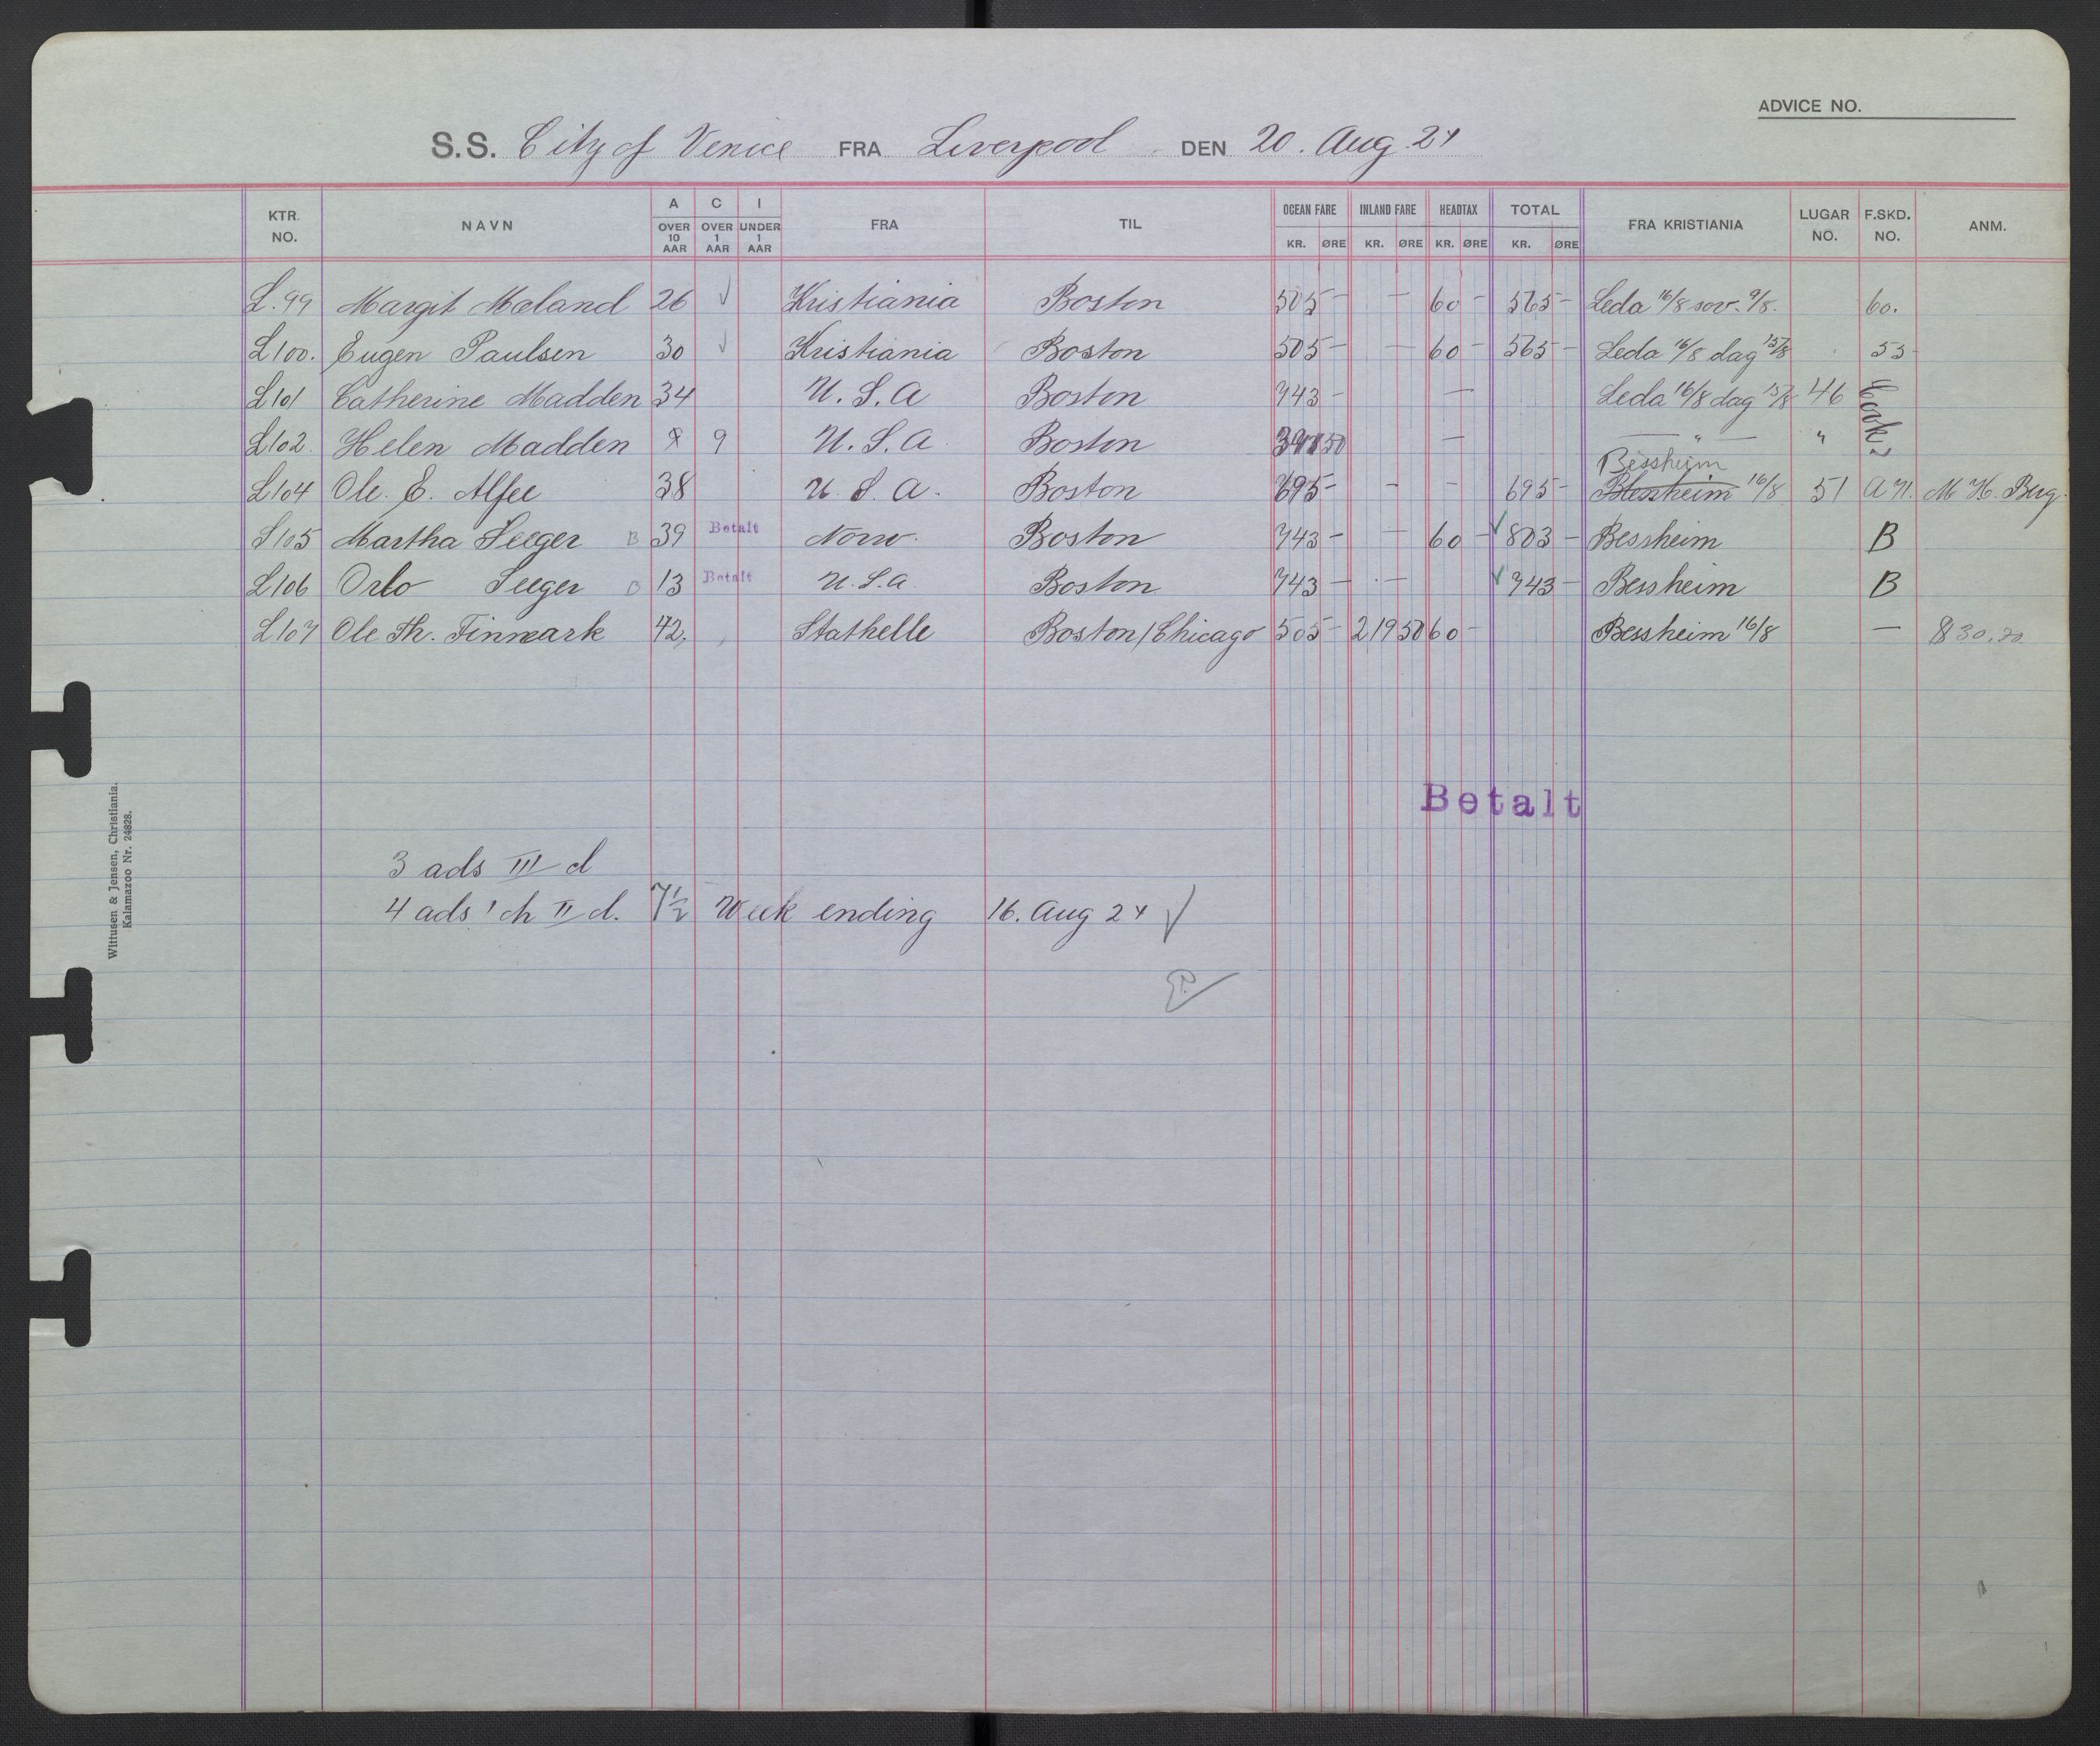 ADVICE NO.
S.S. City of Venice FRA Liverpool DEN 20. Aug. 24
KTR. NO. NAVN A OVER 10 AAR C OVER 1 AAR I UNDER 1 AAR FRA TIL OCEAN FARE KR. ØRE INLAND FARE KR. ØRE HEADTAX KR. ØRE TOTAL KR. ØRE FRA KRISTIANIA LUGAR NO. F.SKD. NO. ANM.
L.99 Margit Mæland 26 ✓ Kristiania Boston 505 - - 60 - 565 - Leda 16/8 sov. 9/8. 60.
L100. Eugen Paulsen 30 ✓ Kristiania Boston 505 - - 60 - 565 - Leda 16/8 dag 15/8 53
L101 Catherine Madden 34 U.S.A Boston 743 - - Leda 16/8 dag 15/8 46 Cook
L102. Helen Madden 9 U.S.A. Boston 371 50 - — " — "
Bessheim
L104 Ole. E. Alfee 38 U.S.A. Boston 695 - - - 695 - Blenheim 16/8 51 A.N. M. H. Berg.
L105 Martha Seeger B 39 Betalt Norw. Boston 743 - - 60 - ✓ 803 - Bessheim B
L106 Orlo Seeger B 13 Betalt U.S.A. Boston 743 - - ✓ 743 - Bessheim B
L107 Ole Th. Finmark 42. Stathelle Boston/Chicago 505 - 219 50 60 - Bessheim 16/8 — $ 30,20
Betalt
3 ads III d
4 ads 1 ch II d. 7½ Week ending 16. Aug 24 ✓
Wittusen & Jensen, Christiania.
Kalamazoo Nr. 24828.